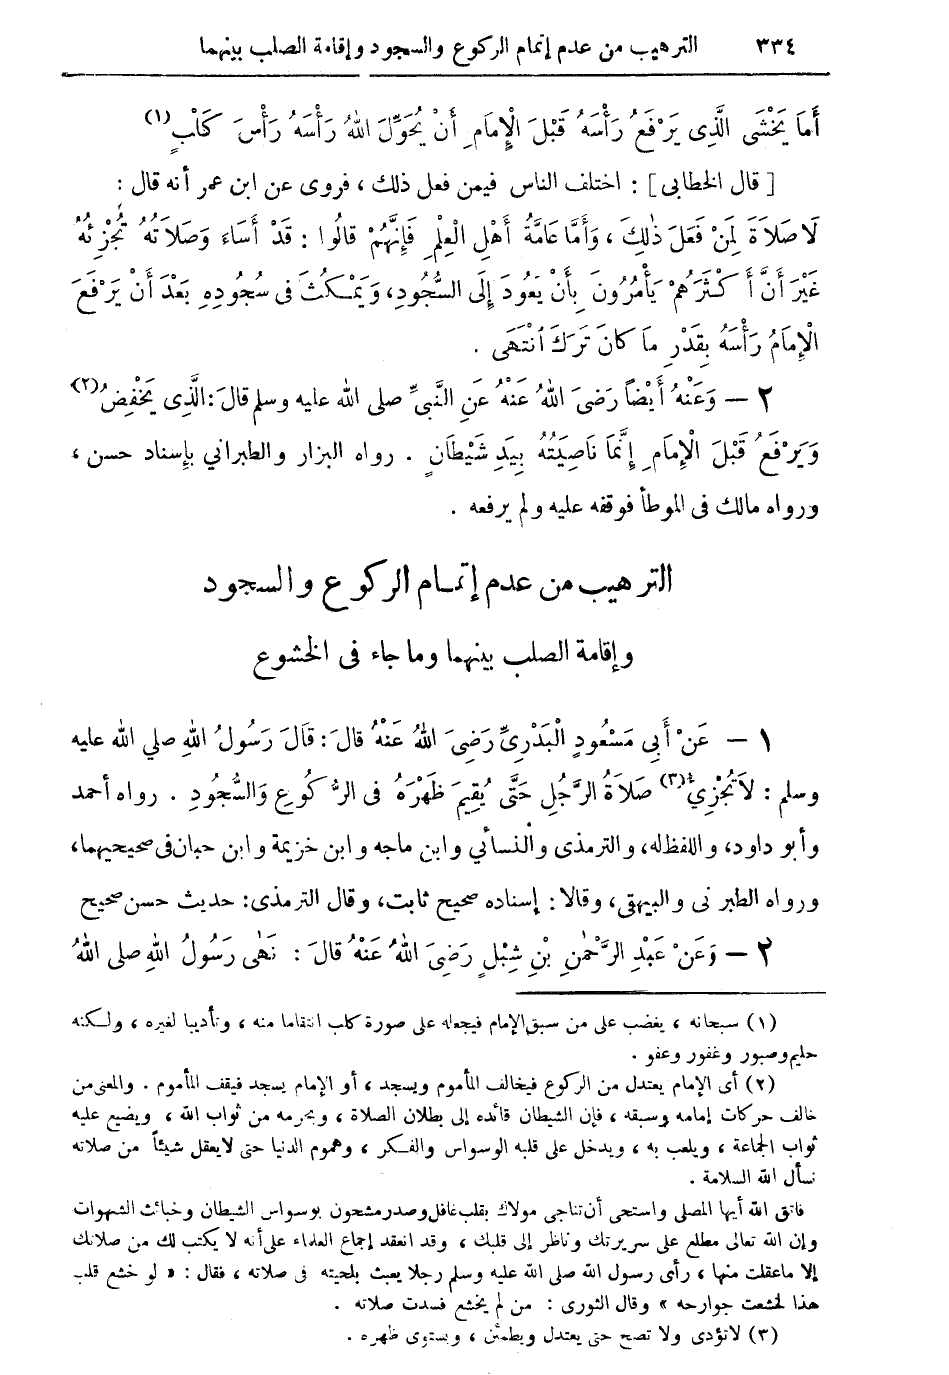 ٣٣٤ الترهيب من عدم إتمام الركوع والسجود وإقامة الصلب بينهما
أَمَا يَخْشَى الَّذِى يَرْفَعُ رَأْسَهُ قَبْلَ الْإِمَامِ أَنْ يُحَوِّلَ اللهُ رَأْسَهُ رَأْسَ كَلْبٍ (١)
[ قال الخطابى ] : اختلف الناس فيمن فعل ذلك ، فروى عن ابن عمر أنه قال :
لَا صَلَاةَ لِمَنْ فَعَلَ ذٰلِكَ ، وَأَمَّا عَامَّةُ أَهْلِ الْعِلْمِ فَإِنَّهُمْ قَالُوا : قَدْ أَسَاءَ وَصَلَاتُهُ تُجْزِئُهُ
غَيْرَ أَنَّ أَكْثَرَهُمْ يَأْمُرُونَ بِأَنْ يَعُودَ إِلَى السُّجُودِ، وَيَمْكُثَ فى سُجُودِهِ بَعْدَ أَنْ يَرْفَعَ
الْإِمَامُ رَأْسَهُ بِقَدْرِ مَا كَانَ تَرَكَ ٱنْتَهَى .
٢ — وَعَنْهُ أَيْضاً رَضِىَ اللهُ عَنْهُ عَنِ النَّبِىِّ صلى الله عليه وسلم قَالَ : الَّذِى يَخْفِضُ (٢)
وَيَرْفَعُ قَبْلَ الْإِمَامِ إِنَّمَا نَاصِيَتُهُ بِيَدِ شَيْطَانٍ . رواه البزار والطبراني بإسناد حسن ،
ورواه مالك فى الموطأ فوقفه عليه ولم يرفعه .
الترهيب من عدم إتمام الركوع والسجود
وإقامة الصلب بينهما وما جاء فى الخشوع
١ — عَنْ أَبِى مَسْعُودٍ الْبَدْرِىِّ رَضِىَ اللهُ عَنْهُ قَالَ : قَالَ رَسُولُ اللهِ صلي الله عليه
وسلم : لَا تُجْزِئُ (٣) صَلَاةُ الرَّجُلِ حَتَّى يُقِيمَ ظَهْرَهُ فى الرُّكُوعِ وَالسُّجُودِ . رواه أحمد
وأبو داود، واللفظ له، والترمذى والنسائي وابن ماجه وابن خزيمة وابن حبان فى صحيحيهما،
ورواه الطبرنى والبيهقى، وقالا : إسناده صحيح ثابت، وقال الترمذى : حديث حسن صحيح
٢ — وَعَنْ عَبْدِ الرَّحْمٰنِ بْنِ شِبْلٍ رَضِىَ اللهُ عَنْهُ قَالَ : نَهَى رَسُولُ اللهِ صلى اللهُ
(١) سبحانه ، يغضب على من سبق الإمام فيجعله على صورة كلب انتقاما منه ، وتأديبا لغيره ، ولكنه
حليم وصبور وغفور وعفو .
(٢) أى الإمام يعتدل من الركوع فيخالف المأموم ويسجد ، أو الإمام يسجد فيقف المأموم . والمعنى من
خالف حركات إمامه وسبقه ، فإن الشيطان قائده إلى بطلان الصلاة ، ويحرمه من ثواب الله ، ويضيع عليه
ثواب الجماعة ، ويلعب به ، ويدخل على قلبه الوسواس والفكر ، وهموم الدنيا حتى لا يعقل شيئاً من صلاته
نسأل الله السلامة .
فاتق الله أيها المصلى واستحى أن تناجى مولاك بقلب غافل وصدر مشحون بوسواس الشيطان وخبائث الشهوات
وإن الله تعالى مطلع على سريرتك وناظر إلى قلبك ، وقد انعقد إجماع العلماء على أنه لا يكتب لك من صلاتك
إلا ما عقلت منها ، رأى رسول الله صلى الله عليه وسلم رجلا يعبث بلحيته فى صلاته ، فقال : « لو خشع قلب
هذا لخشعت جوارحه » وقال الثورى : من لم يخشع فسدت صلاته .
(٣) لا تؤدى ولا تصح حتى يعتدل ويطمئن ، ويستوى ظهره .